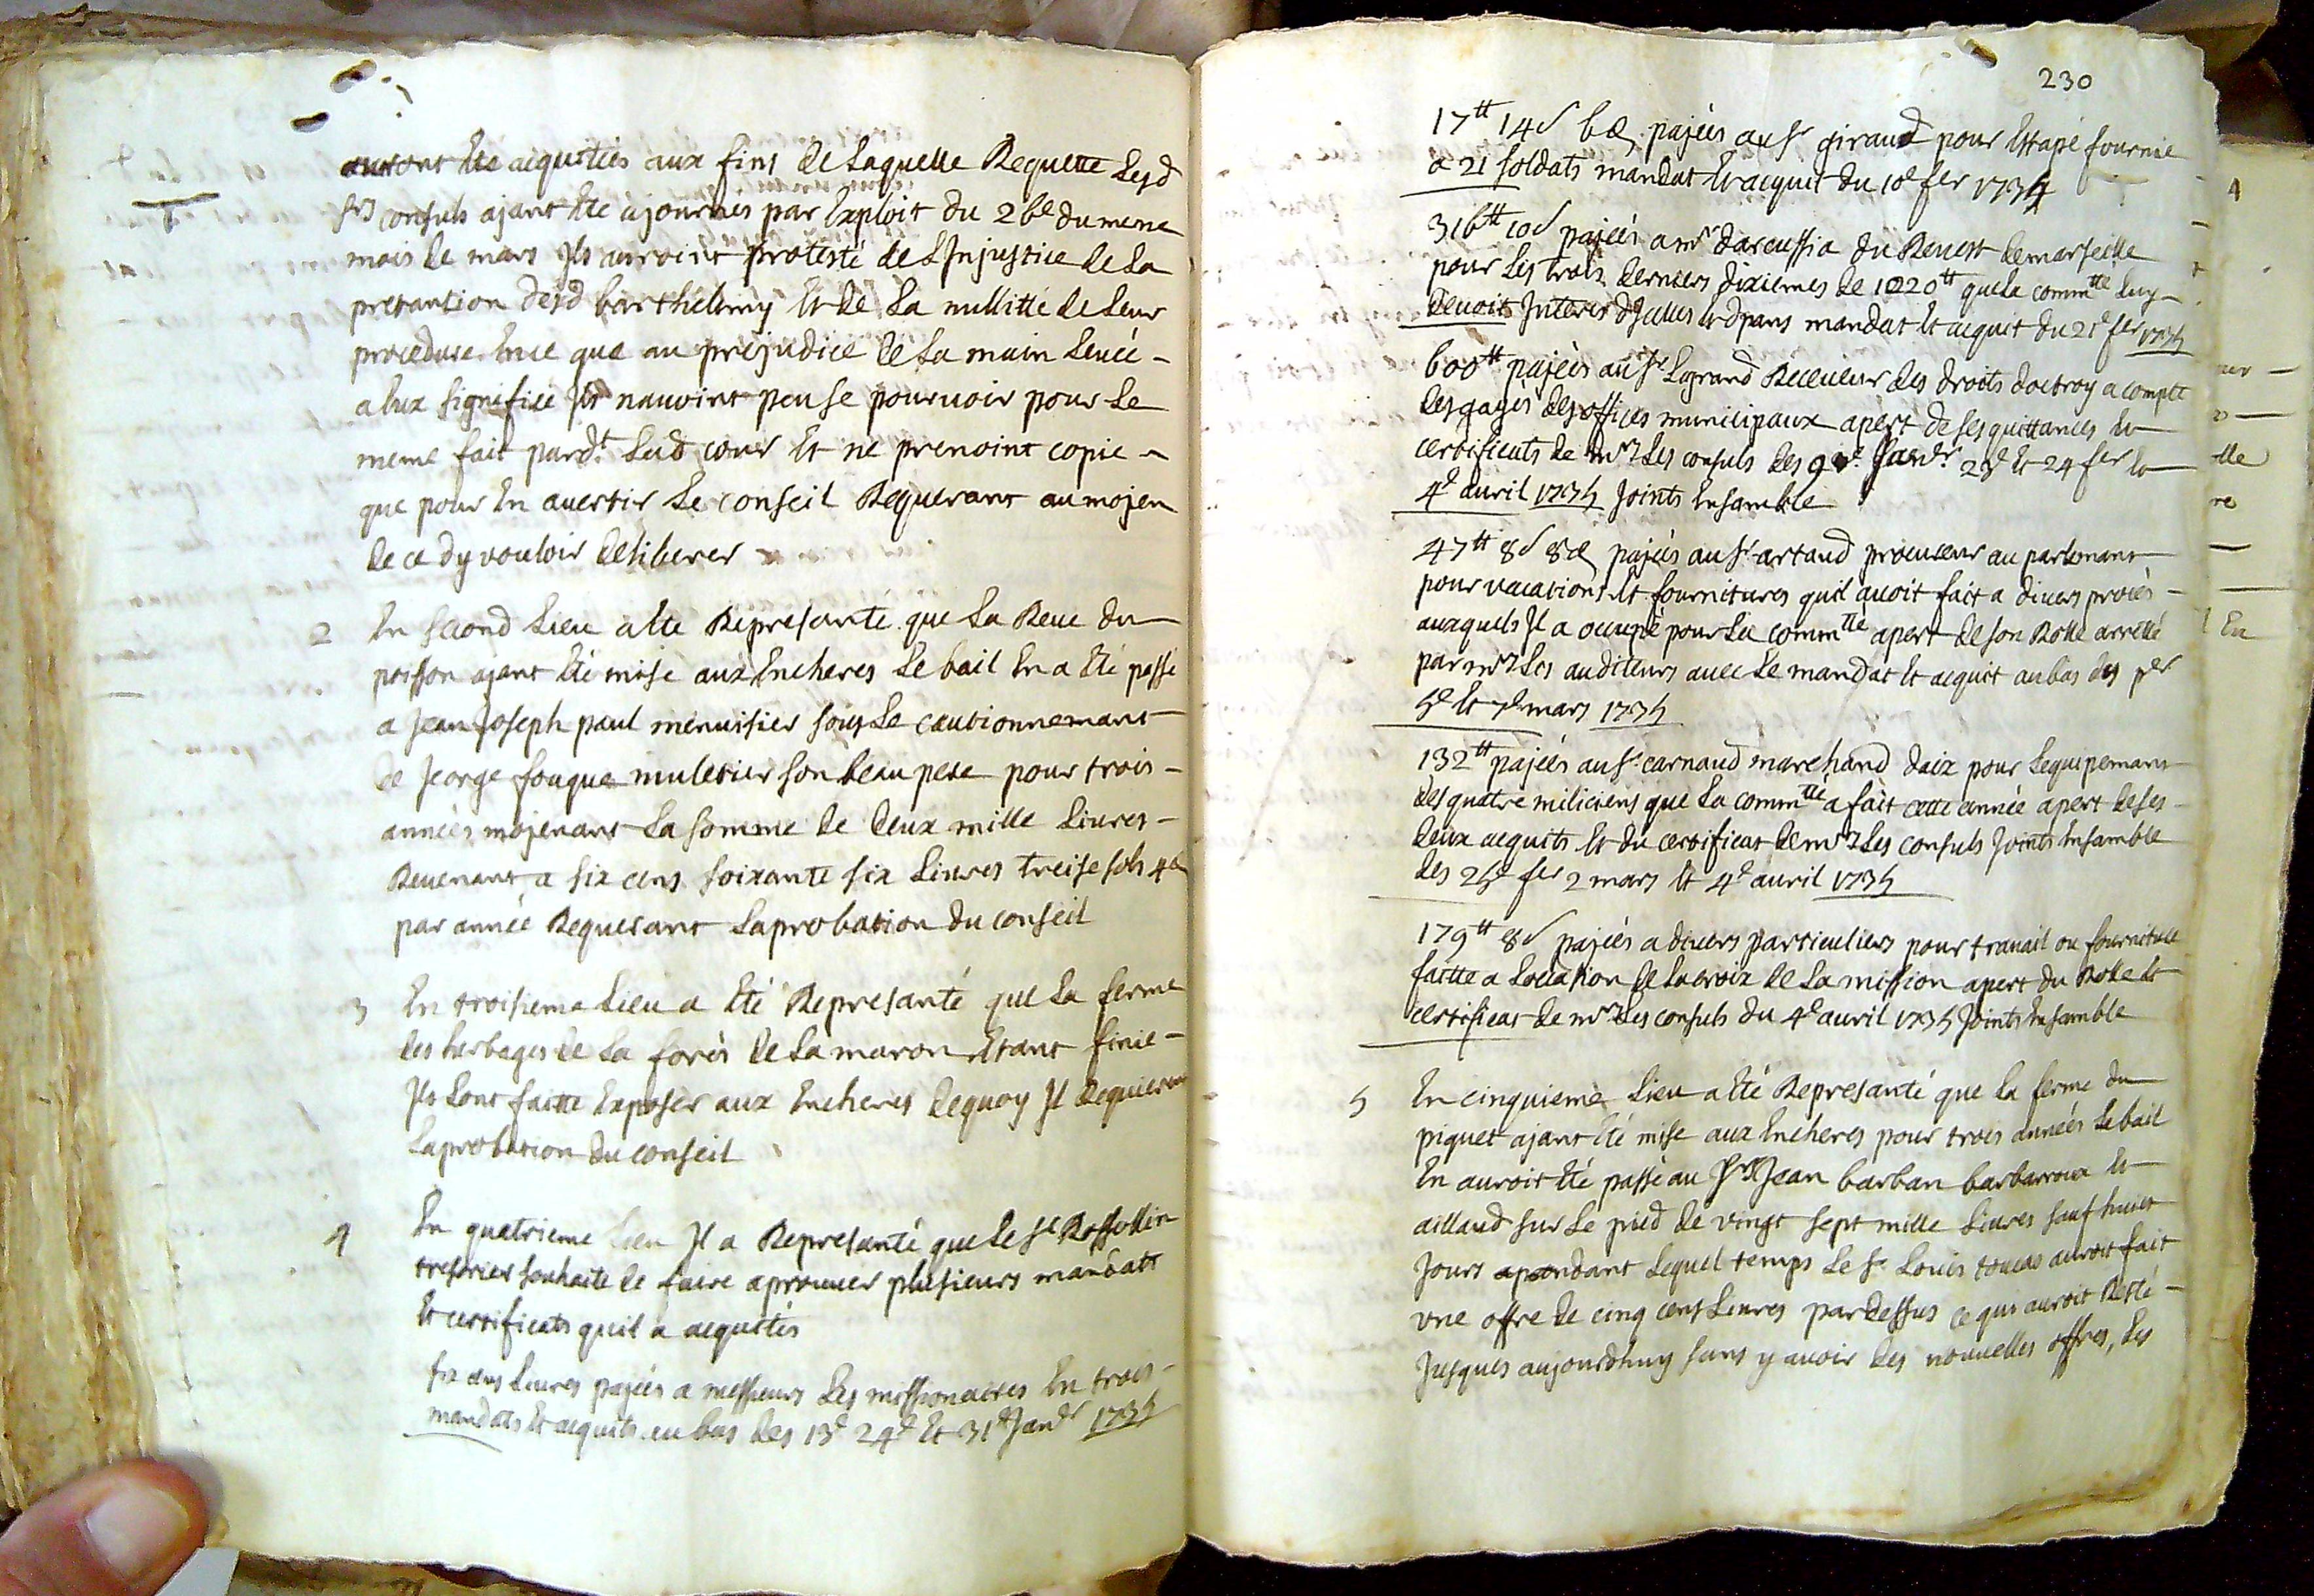 auront ete aquitiés aux fins de Laquelle Requette Lesd
srs consuls ajant ete ajournés par Exploit du 26e du meme
mois de mars Ils auroint protesté de LInjustice de La
pretantion desd barthelemy et de La nullitté de Leur
procedure En ce que au prejudice de La main Levée -
a Eux signifiée Ils nauoint peu se pouruoir pour Le
meme fait pardt Lad cour Et ne prenoint copie -
que pour En auertir Le conseil Requerant au mojen
de ce dy vouloir deliberer
2 En second Lieu a Ete Represanté que La Reue du
poisson ajant Eté mise aux Encheres Le bail En a Eté passé
a Jean Joseph paul menuisier sous Le cautionnemant
de Jeorge fouque muletier son beau pere pour trois -
années mojenant La somme de deux mille Liures -
Reuenant a six cens soixante six Liures treise sols 4d
par année Requerant Laprobation du conseil
3 En troisieme Lieu a Eté Represanté que La ferme
des herbages de La forés de La maron Etant finie -
Ils Lont faitte Exposer aux Encheres dequoy Il Requierent
Laprobation du conseil
4 En quatrieme Lieu Il a Represanté que Le sr Rossollin
tresorier souhaite de faire aprouuer plusieurs mandats
Et certificats quil a aquittés
six cens Liures pajées a messieurs Les missionaires En trois -
mandats Et aquits au bas des 13e 24e Et 31e Janer 1735
230
17tt 14s 6d pajées au sr giraud pour Ettape fournie
a 21 soldats mandat Et aquit du 10e fer 1735
316tt 10s pajées a mr darcussia du Reuest de marseille
pour Les trois derniers dixiemes de 1020tt que La commtté Luy -
deuoit Interes dJcelles Et dpans mandat Et aquit du 21e fer 1735
600tt pajées au sr Legrand Receueur des droits doctroy a compte
des gages des offices municipaux apert de ses quittances Et
certificats de mrs Les consuls des 9e Janer 23e Et 24 fer Et
4e auril 1735 Joints Ensamble
47tt 8s 8d pajées au sr artaud procureur au parlemant
pour vacations Et fournitures quil auoit fait a diuers procés -
auxquels Il a occupé pour La commtté apert de son Rolle arretté
par mrs Les auditeurs auec Le mandat Et aquit au bas des per
5e Et 7e mars 1735
132tt pajées au sr carnaud marchand daix pour Lequipemant
des quatre miliciens que La commtté a fait cette année apert de ses -
deux aquits Et du certificat de mrs Les consuls Joints Ensamble
des 25e fer 2 mars Et 4e auril 1735
179tt 8s pajées a diuers particuliers pour trauail ou fourniture
faitte a Location de La croix de La mission apert du Rolle Et
certificat de mrs Les consuls du 4e auril 1735 Joints Ensamble
5 En cinquieme Lieu a Eté Represanté que La ferme du
piquet ajant Eté mise aux Encheres pour trois années Le bail
En auroit Eté passé au Srs Jean barban barbarroux Et
aillaud sur Le pied de vingt sept mille Liures sauf huict
Jours apendant Lequel temps Le sr Louis toucas auroit fait
vne offre de cinq cens Liures pardessus ce qui auroit Resté -
Jusques aujourdhuy sans y auoir des nouuelles offres, Les